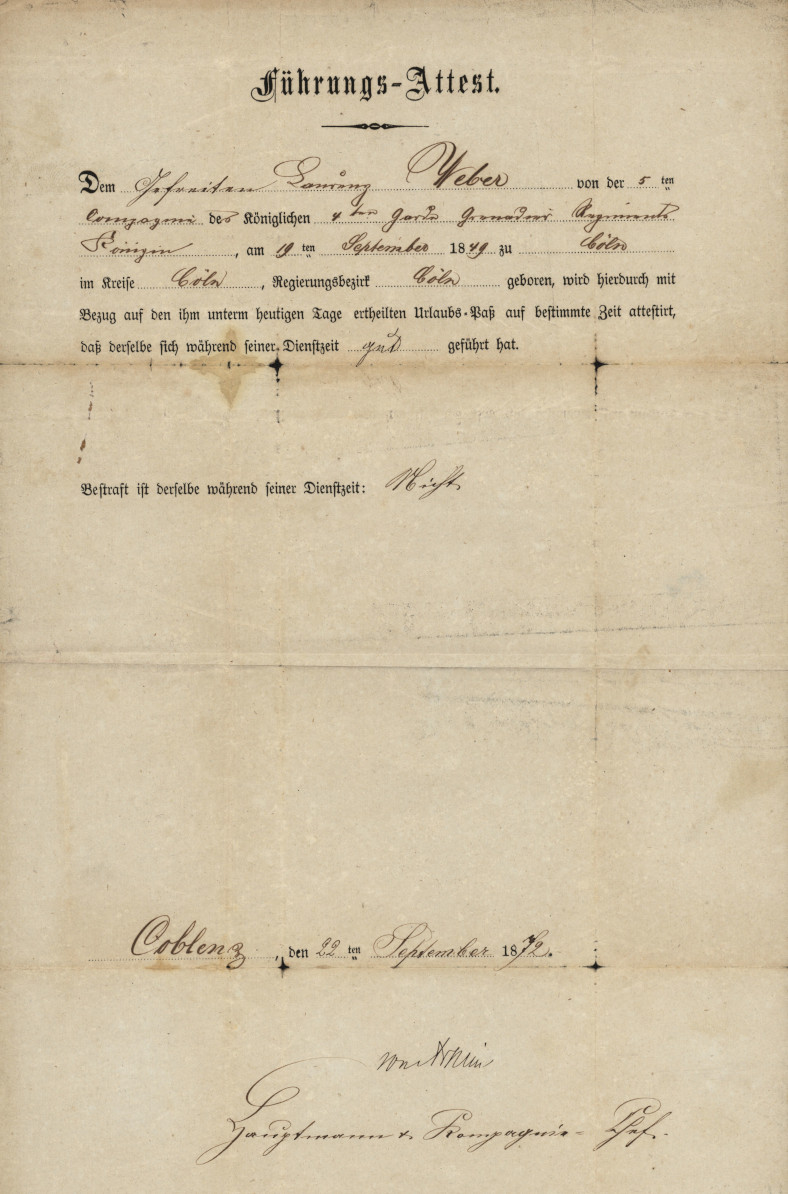 Führungs-Attest.
Dem Gefreiten Laurenz Weber von der 5 ten
Compagnie des Königlichen 4 ten Garde Grenadier Regiments
Königin, am 19 ten September 1849 zu Cöln
im Kreise Cöln, Regierungsbezirk Cöln geboren, wird hierdurch mit
Bezug auf den ihm unterm heutigen Tage ertheilten Urlaubs-Paß auf bestimmte Zeit attestirt,
daß derselbe sich während seiner Dienstzeit gut geführt hat.
Bestraft ist derselbe während seiner Dienstzeit: Nicht
Coblenz, den 22 ten September 1872.
Hauptmann & Kompagnie-Chef.